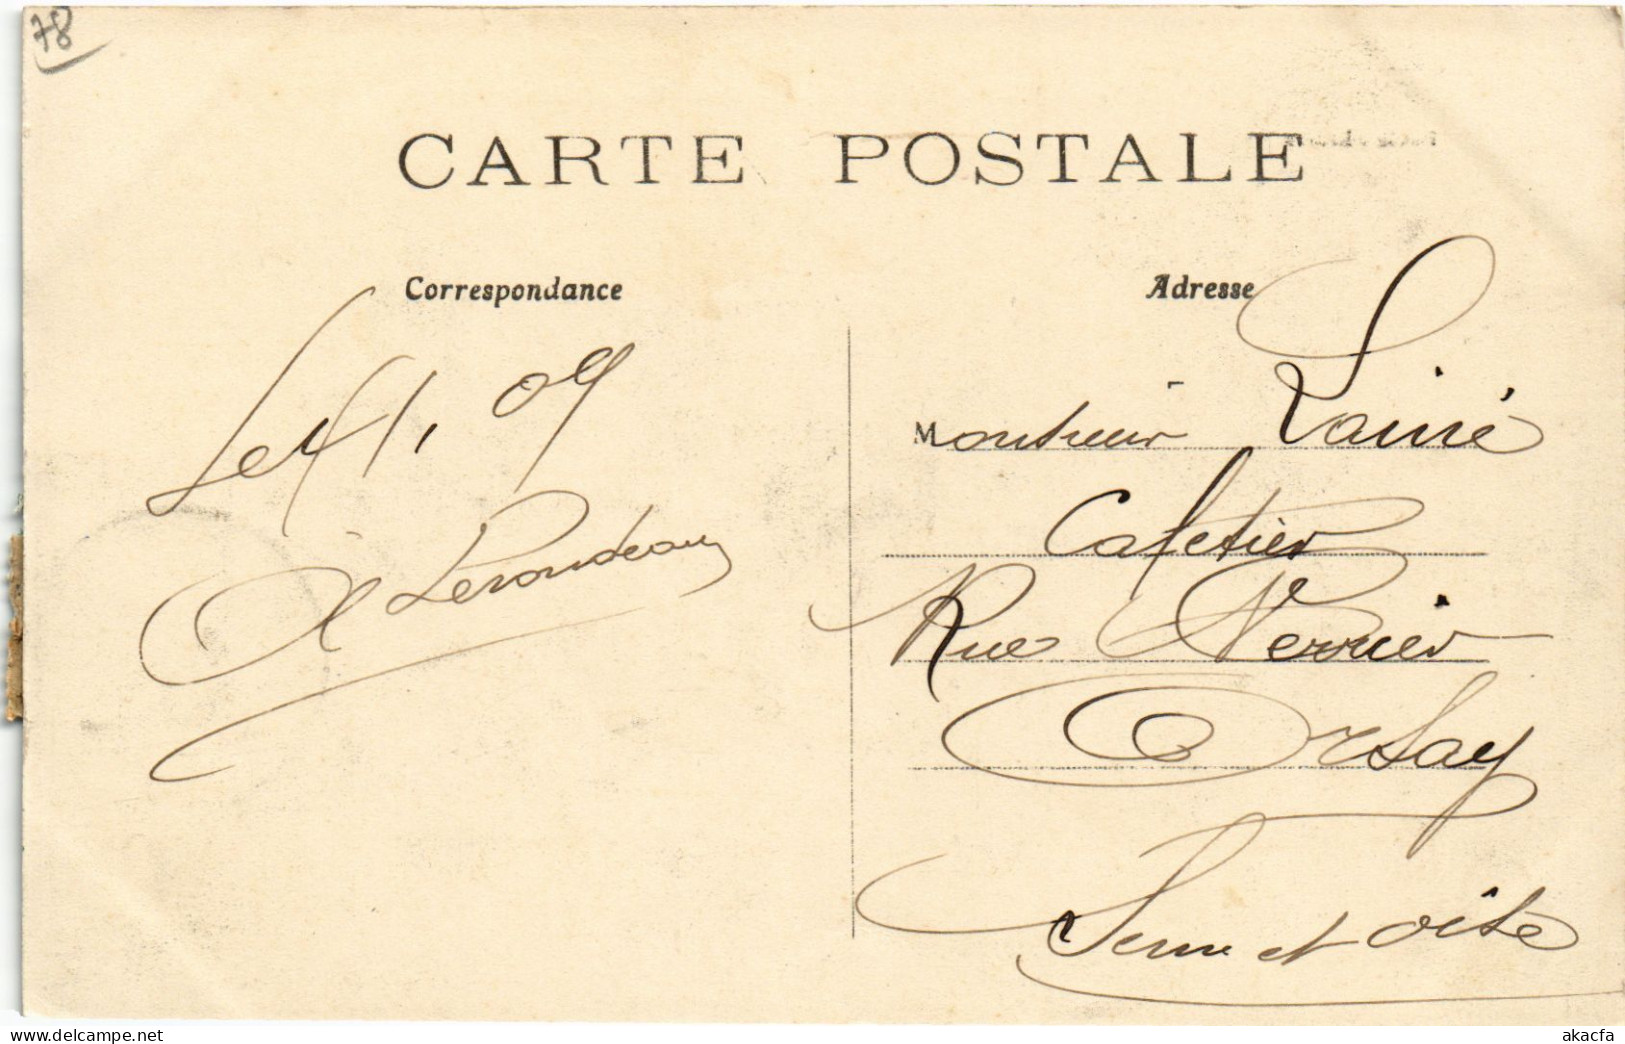 78
CARTE POSTALE
Correspondance
Adresse
Le 4/1, 09
Lerondeau
Monsieur Lainé
Cafetier
Rue Verrier
Orsay
Seine et Oise
akacfa